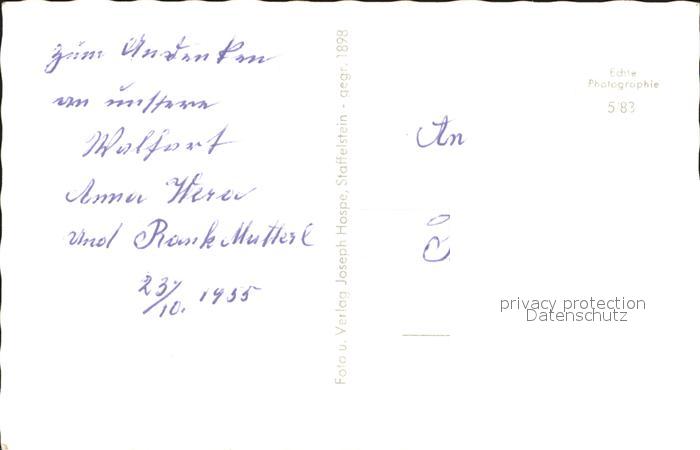 Zum Andenken
an unsere
Walfart
Anna Wera
und Rank Mutterl
23/10. 1955
Foto u. Verlag Joseph Hospe, Staffelstein - gegr. 1898
Echte
Photographie
5/83
An
privacy protection
Datenschutz